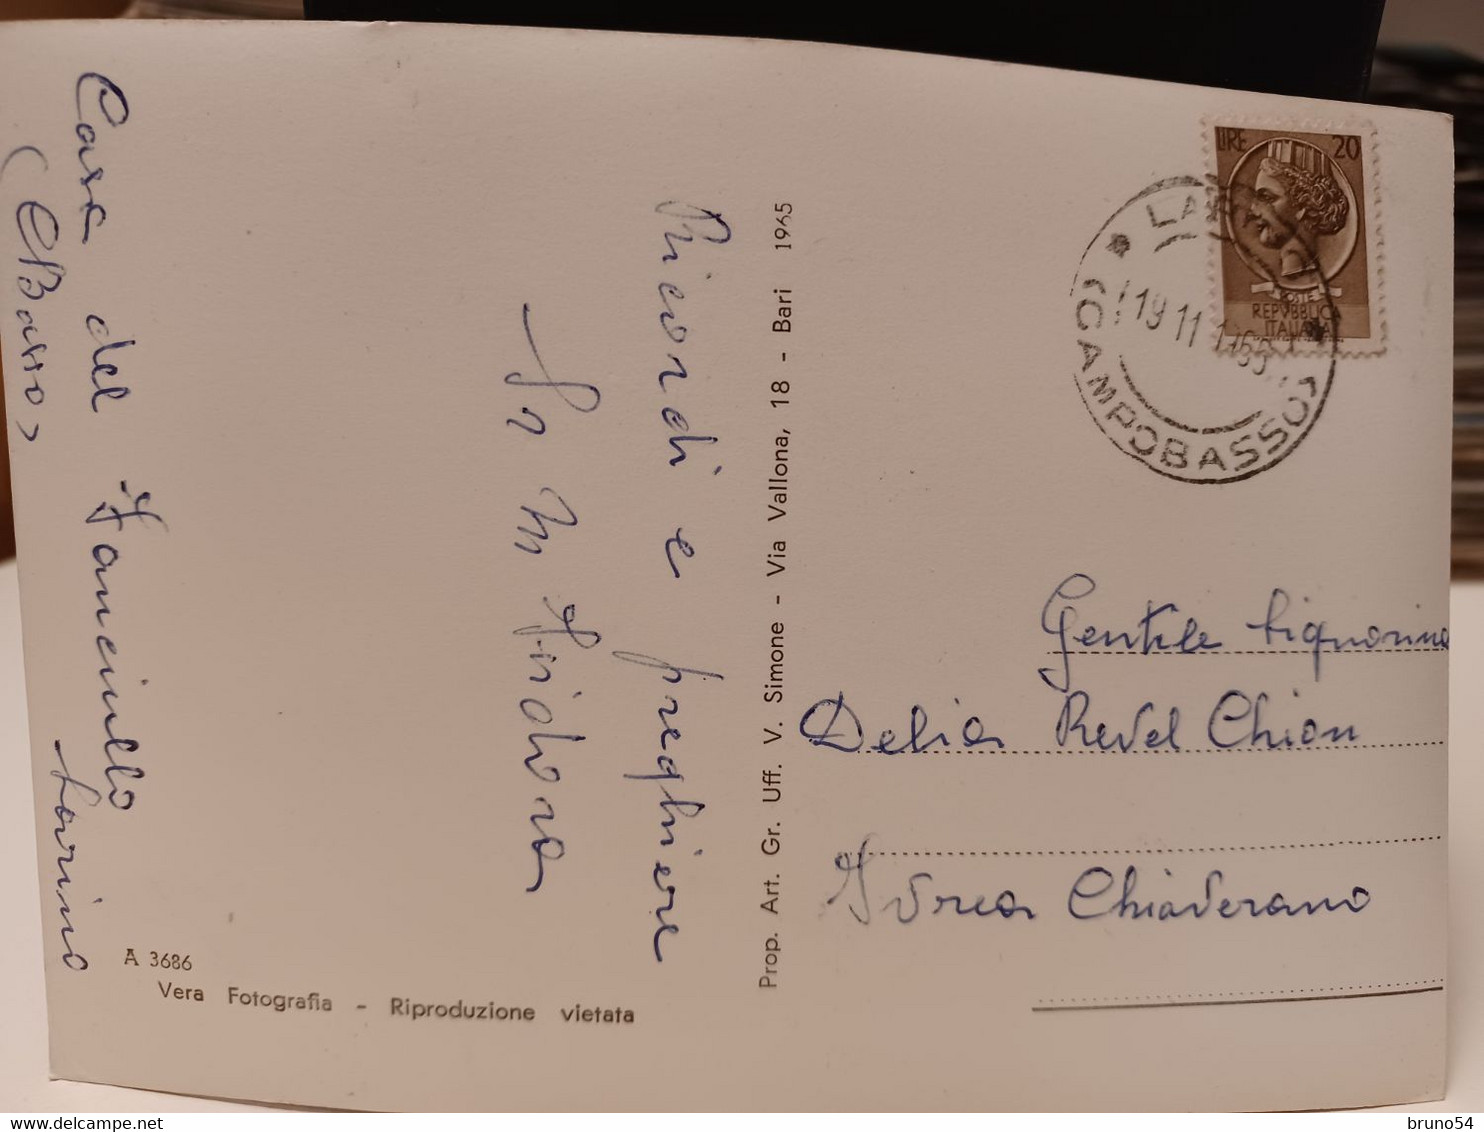 Casa del Fanciullo
(CBasso)
Larino
Ricordi e preghiere
Sr M Isidora
A 3686
Vera Fotografia - Riproduzione vietata
Prop. Art. Gr. Uff. V. Simone - Via Vallona, 18 - Bari 1965
LIRE 20
POSTE
REPVBBLICA
ITALIANA
19 11 1965
(CAMPOBASSO)
Gentile Signorina
Delia Revel Chion
Ivrea Chiaverano
bruno54